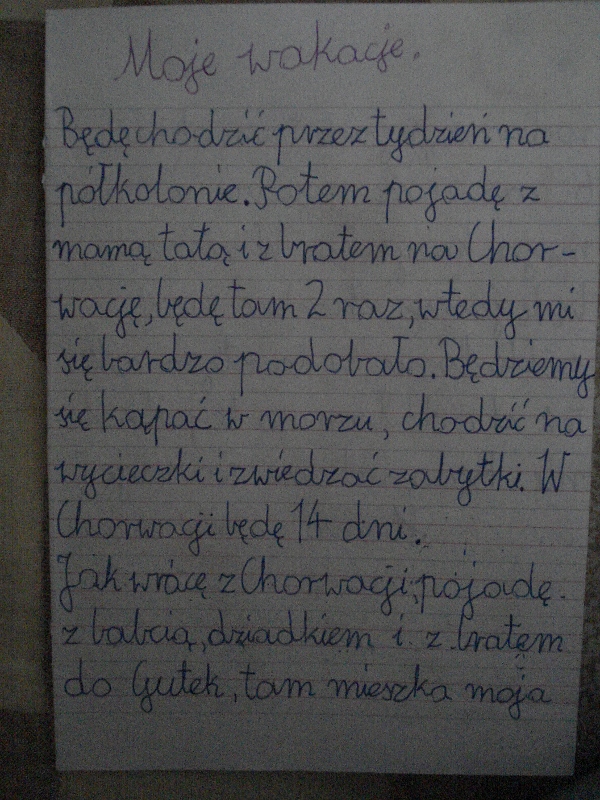 Moje wakacje.
Będę chodzić przez tydzień na
półkolonie. Potem pojadę z
mamą tatą i z bratem na Chor-
wację, będę tam 2 raz, wtedy mi
się bardzo podobało. Będziemy
się kąpać w morzu, chodzić na
wycieczki i zwiedzać zabytki. W
Chorwacji będę 14 dni.
Jak wrócę z Chorwacji, pojadę
z babcią, dziadkiem i z bratem
do Gutek, tam mieszka moja